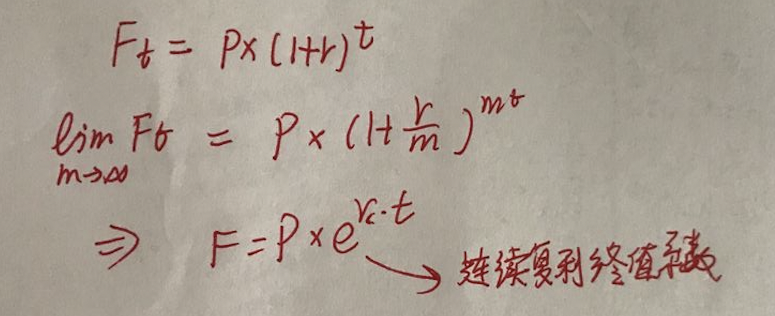 Fₜ = P×(1+r)ᵗ
lim Fₜ = P × (1+ r/m )ᵐᵗ
m→∞
⇒ F=P×e^(r_c·t)
→ 连续复利终值系数